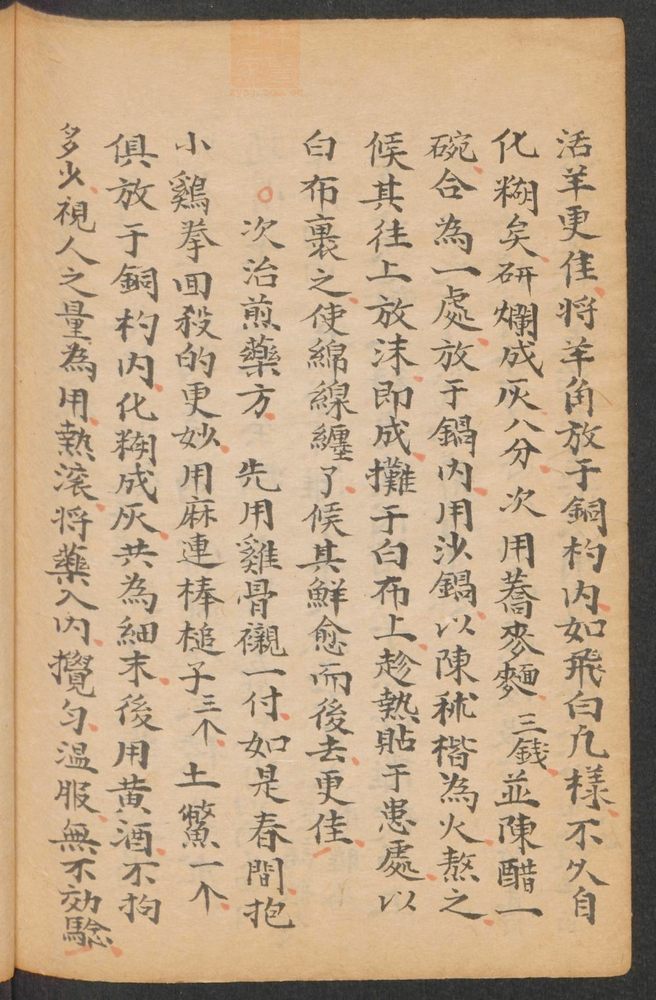 活羊更佳将羊角放于銅杓内如飛白凢樣不久自
化糊矣研爛成灰八分次用蕎麥麵三錢並陳醋一
碗合為一處放于鍋内用沙鍋以陳秫楷為火熬之
候其往上放沫即成攤于白布上趁熱貼于患處以
白布裹之使綿線纏了候其鮮愈而後去更佳
○次治煎藥方 先用雞骨襯一付如是春間抱
小鷄拳回殺的更妙用麻連棒槌子三个土鱉一个
俱放于銅杓内化糊成灰共為細末後用黄酒不拘
多少視人之量為用熱滚将藥入内攪匀温服無不効騐